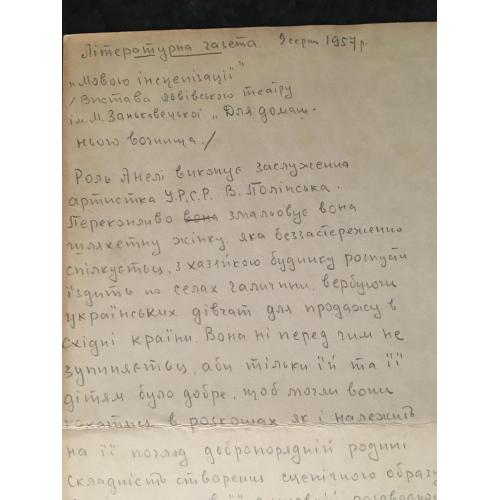 Літературна газета. 9 серпн 1957 р.
"Мовою інсценізації"
/Вистава Львівського театру
ім. М. Заньковецької „Для домаш-
нього вогнища./
Роль Анелі виконує заслужена
артистка У.Р.С.Р. В. Полінська.
Переконливо вона змальовує вона
шляхетну жінку, яка беззастереженно
спілкується, з хазяйкою будинку розпусти
їздить по селах галичини, вербуючи
українських дівчат для продажу в
східні країни. Вона ні перед чим не
зупиняється, аби тільки їй та її
дітям було добре, щоб могли вони
кохатись в розкошах як і належить
на її погляд добропорядній родині
Складність створення сценічного образу